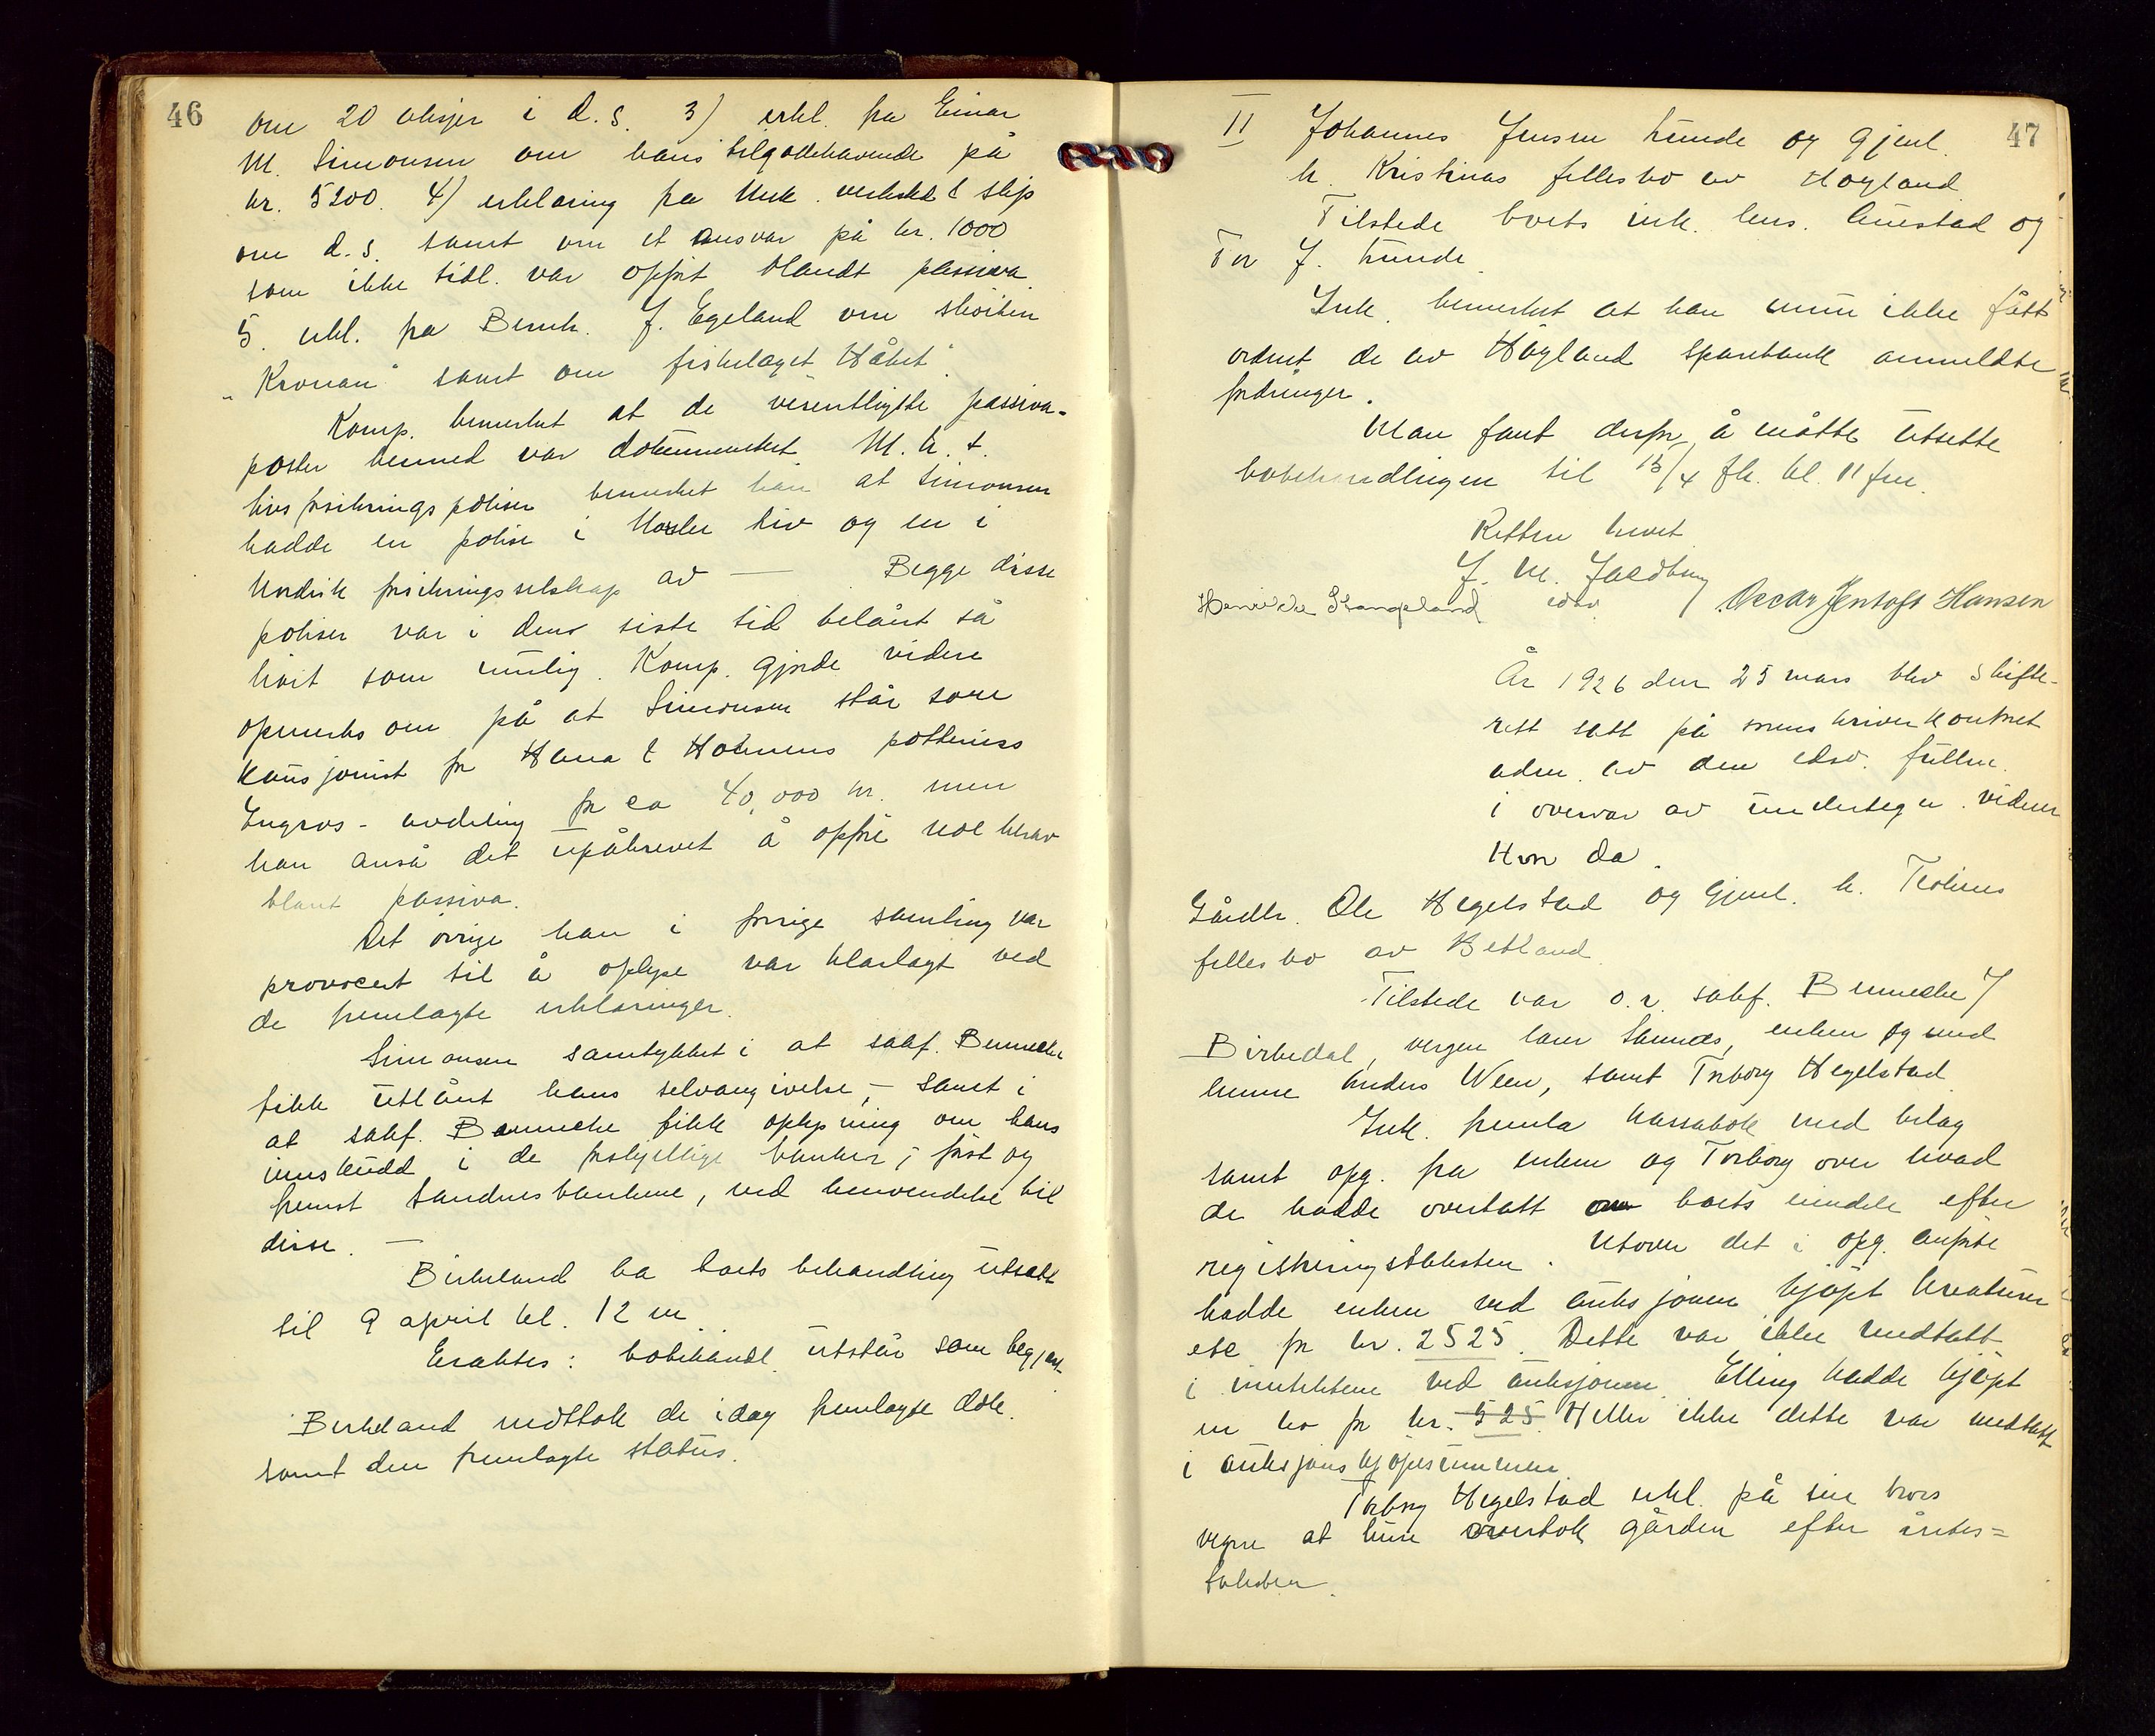 46
om 20 aksjer i d. s. 3) erkl. fra Einar
M. Simonsen om hans tilgodehavende på
kr. 5200. 4) erklæring fra Mek. verksted & slip
om d. s. samt om et ansvar på kr. 1000
som ikke tidl. var opført blandt passiva.
5. erkl. fra Bernh. J. Egeland om skøiten
"Kronan" samt om fiskelaget "Håbet".
Komp. bemerket at de vesentligste passiva-
poster hermed var dokumentert. M. h. t.
livsforsikringspoliser bemerket han at Simonsen
hadde en polise i Norske Liv og en i
Nordisk forsikringsselskap av — Begge disse
poliser var i den siste tid belånt så
høit som mulig. Komp. gjorde videre
opmerks om på at Simonsen står som
kausjonist for Hana & Holmens potteriers
Engros-avdeling for ca 40,000 kr. men
han anså det upåkrevet å opføre noe krav
blant passiva.
Det øvrige han i forrige samling var
provocert til å oplyse var klarlagt ved
de fremlagte erklæringer.
Simonsen samtykket i at sakf. Bennecke
fikk utlånt hans selvangivelse, — samt i
at sakf. Bennecke fikk oplysning om hans
innskudd i de forskjellige banker, først og
fremst Sandnesbankene, ved henvendelse til
disse. —
Birkeland ba boets behandling utsatt
til 9 april kl. 12 m.
Eraktes: bobehandl. utstår som begjært
Birkeland mottok de idag fremlagte dok.
samt den fremlagte status.
47
II Johannes Jensen Lunde og gjenl.
h. Kristinas fellesbo av Høyland
Tilstede boets ink. lens. Auestad og
Tor J. Lunde.
Ink. bemerket at han ennu ikke fått
ordnet de av Høyland Sparebank anmeldte
fordringer.
Man fant derfor å måtte utsette
bobehandlingen til 13/4 fk. kl. 11 fm.
Retten hevet
J. M. Jaedtberg
edsv.
Henrikke Stangeland / Oscar Jentoft Hansen
År 1926 den 25 mars blev skifte-
rett satt på sorenskriverkontoret
adm. av den edsv. fullm.
i overvær av undertegn. vidner
Hvor da.
Gårdbr. Ole Hegelstad og gjenl. h. Teoline
fellesbo av Betland.
Tilstede var o. r. sakf. Bennecke /
Birkedal, vergen Lars Skunds, enken og med
henne Anders Ween, samt Torborg Hegelstad.
Ink. fremla kassabok med bilag
samt opg. fra enken og Torborg over hvad
de hadde overtatt av boets eiendele efter
registreringstaksten. Utover det i opg. anførte
hadde enken ved auksjonen kjøpt kreaturer
etc for kr. 2525. Dette var ikke medtatt
i inntektene ved auksjonen. Elling hadde kjøpt
en ko for kr. 525. Heller ikke dette var medtatt
i auksjonskjøpesummen.
Torborg Hegelstad erkl. på sin brors
vegne at hun overtok gården efter årets-
taksten.